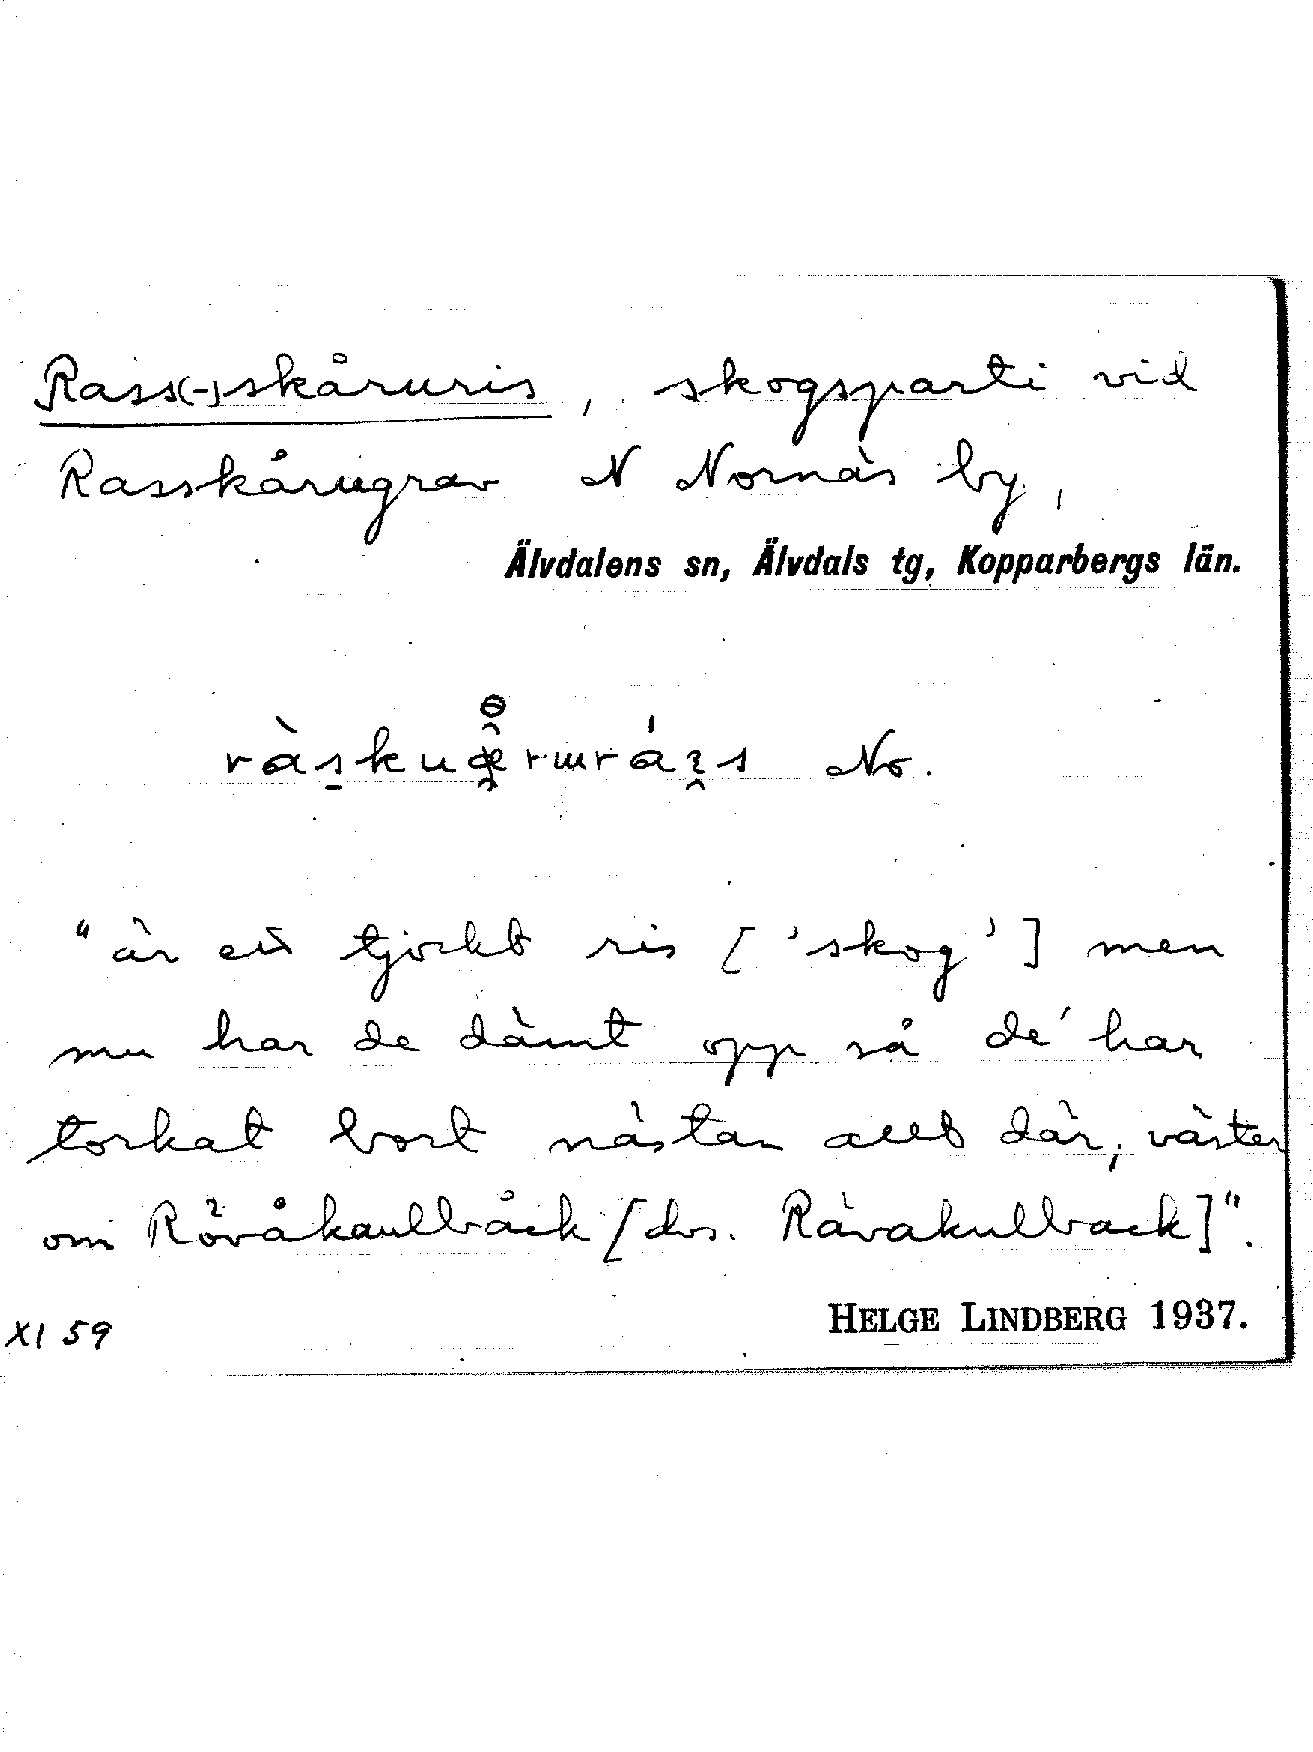 Rass(-)skåruris, skogsparti vid
Rasskårugrav N Nornäs by,
Älvdalens sn, Älvdals tg, Kopparbergs län.
No.
"är ett tjockt ris ['skog'] men
nu har de dämt opp så de' har
torkat bort nästan allt där, väster
om Rövåkaullbåck [dvs. Rävakullback]".
XI 59
HELGE LINDBERG 1937.